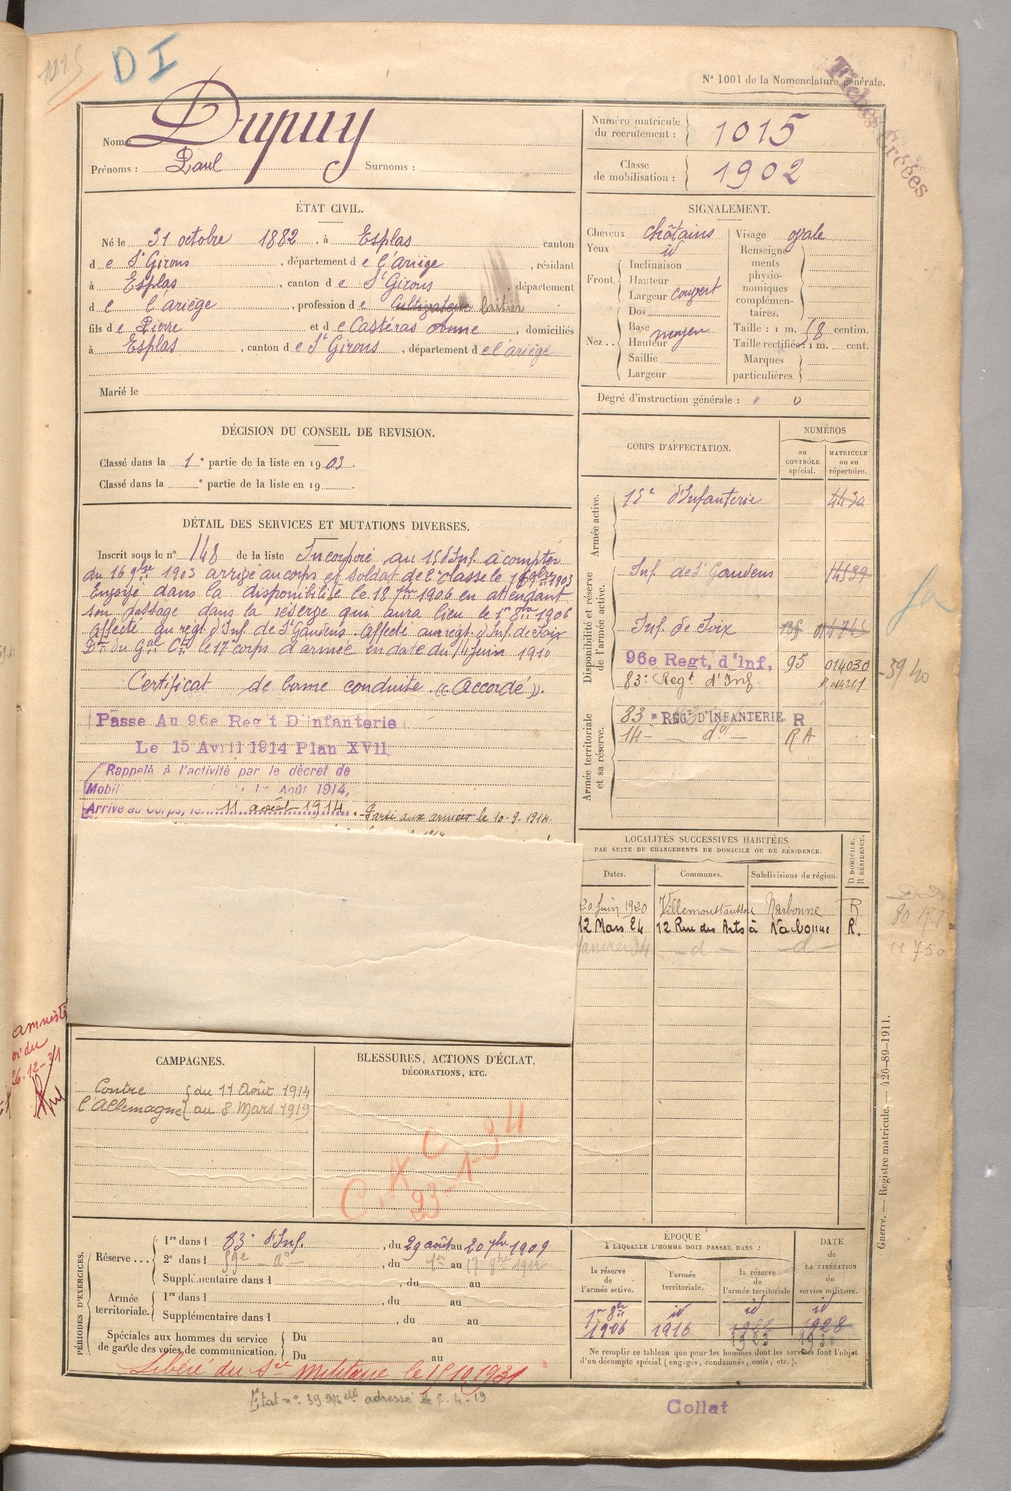 1015
DI
N° 1001 de la Nomenclature générale.
Fiches créées
Nom : Dupuy
Prénoms : Paul Surnoms :
Numéro matricule du recrutement : 1015
Classe de mobilisation : 1902
ÉTAT CIVIL.
Né le 31 octobre 1882, à Esplas canton
de St Girons, département de l'ariège, résidant
à Esplas, canton de St Girons, département
de l'ariège, profession de Cultivateur laitier
fils de Pierre et de Castéras Anne, domiciliés
à Esplas, canton de St Girons, département de l'ariège
Marié le
SIGNALEMENT.
Cheveux châtains
Yeux id
Front Inclinaison
Hauteur
Largeur couvert
Nez Dos
Base moyen
Hauteur
Saillie
Largeur
Visage ovale
Renseignements physionomiques complémentaires.
Taille : 1 m. 58 centim.
Taille rectifiée : 1 m. cent.
Marques particulières.
Degré d'instruction générale : 0
DÉCISION DU CONSEIL DE REVISION.
Classé dans la 1e partie de la liste en 1903.
Classé dans la e partie de la liste en 19 .
DÉTAIL DES SERVICES ET MUTATIONS DIVERSES.
Inscrit sous le n° 148 de la liste Incorporé au 15e Inf. à compter
du 16 9bre 1903 arrivé au corps et soldat de 2e classe le 16 9bre 1903
Envoyé dans la disponibilité le 18 7bre 1906 en attendant
son passage dans la réserve qui aura lieu le 1er 8bre 1906
Affecté au regt d'Inf. de St Gaudens. Affecté au regt d'Inf. de Foix
Don du Gal Ct le 17e corps d'armée en date du 11 juin 1910
Certificat de bonne conduite "Accordé".
Passe Au 96e Reg't D'Infanterie
Le 15 Avril 1914 Plan XVII
Rappelé à l'activité par le décret de
Mobil 1er Août 1914,
Arrivé au Corps, le 11 août 1914. Parti aux armées le 10-9-1914
CORPS D'AFFECTATION.
NUMÉROS
au CONTRÔLE spécial.
MATRICULE ou au répertoire.
Armée active.
15e d'Infanterie 4430
Disponibilité et réserve de l'armée active.
Inf. de St Gaudens
Inf. de Foix
96e Regt, d'Inf, 95 014030
83e Regt d'Inf.
Armée territoriale et sa réserve.
83e REGt D'INFANTERIE R
14- do - RA
39 40
LOCALITÉS SUCCESSIVES HABITÉES
PAR SUITE DE CHANGEMENTS DE DOMICILE OU DE RÉSIDENCE.
Dates. Communes. Subdivisions de région. D DOMICILE. R RÉSIDENCE.
20 Juin 1920 Villemoustaussou Narbonne R
12 Mars 24 12 Rue des Arts à Narbonne R.
Janvier 34 - d - - d -
11750
amnistié
26-12-31
CAMPAGNES.
Contre l'Allemagne du 11 Août 1914
au 8 Mars 1919
BLESSURES, ACTIONS D'ÉCLAT,
DÉCORATIONS, ETC.
23-1-34
PÉRIODES D'EXERCICES.
Réserve... 1re dans l 83e d'Inf., du 29 août au 20 7bre 1909
2e dans l 59e do, du 1er au 17 8bre 1912
Supplémentaire dans l , du au
Armée territoriale. 1re dans l , du au
Supplémentaire dans l , du au
Spéciales aux hommes du service de garde des voies de communication. Du au
Du au
Libéré du Sce Militaire le 15 10 1931
ÉPOQUE
À LAQUELLE L'HOMME DOIT PASSER DANS :
la réserve de l'armée active.
l'armée territoriale.
la réserve de l'armée territoriale
DATE DE LA LIBÉRATION du service militaire.
1er 8bre 1906
id 1916
id 1922 1923
id 1928
Ne remplir ce tableau que pour les hommes dont les services font l'objet
d'un décompte spécial (engagés, condamnés, omis, etc.).
Guerre. — Registre matricule. — 426-89-1911.
Collat